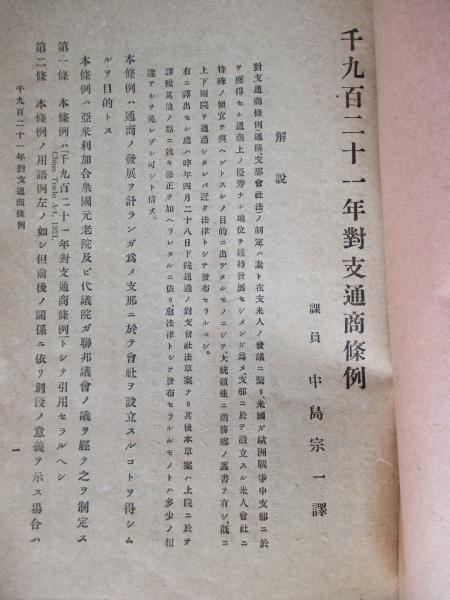 千九百二十一年對支通商條例
課員 中島宗一譯
解說
對支通商條例(通稱、支那會社法)ノ制定ハ素ト在支米人ノ發議ニ繫リ、米國ガ歐洲戰爭中支那ニ於
テ獲得セル通商上ノ優秀ナル地位ヲ維持發展セシメンガ爲メ支那ニ於テ設立スル米人會社ニ
特殊ノ便宜ヲ與ヘントスルノ目的ニ出デタルモノニシテ、大統領並ニ商務卿ノ裏書ヲ有シ、既ニ
上下兩院ヲ通過シタレバ近ク法律トシテ發布セラルベシ。
右ニ譯出セル處ハ昨年四月二十八日下院通過ノ支那會社法草案ナリ其後本草案ハ上院ニ於テ
課稅其他ノ點ニ就キ修正ヲ加ヘラレタルニ依リ、愈法律トシテ發布セラルルモノトハ多少ノ相
違アルヲ免レザル可シト信ズ。
本條例ハ通商ノ發展ヲ計ランガ爲メ支那ニ於テ會社ヲ設立スルコトヲ得シム
ルヲ目的トス
本條例ハ亞米利加合衆國元老院及ビ代議院ガ聯邦議會ノ議ヲ經テ之ヲ制定ス
第一條 本條例ハ「千九百二十一年對支通商條例」トシテ引用セラルヘシ
(China Trade Act, 1921)
第二條 本條例ノ用語例左ノ如シ但前後ノ關係ニ依リ別段ノ意義ヲ示ス場合ハ
千九百二十一年對支通商條例
一